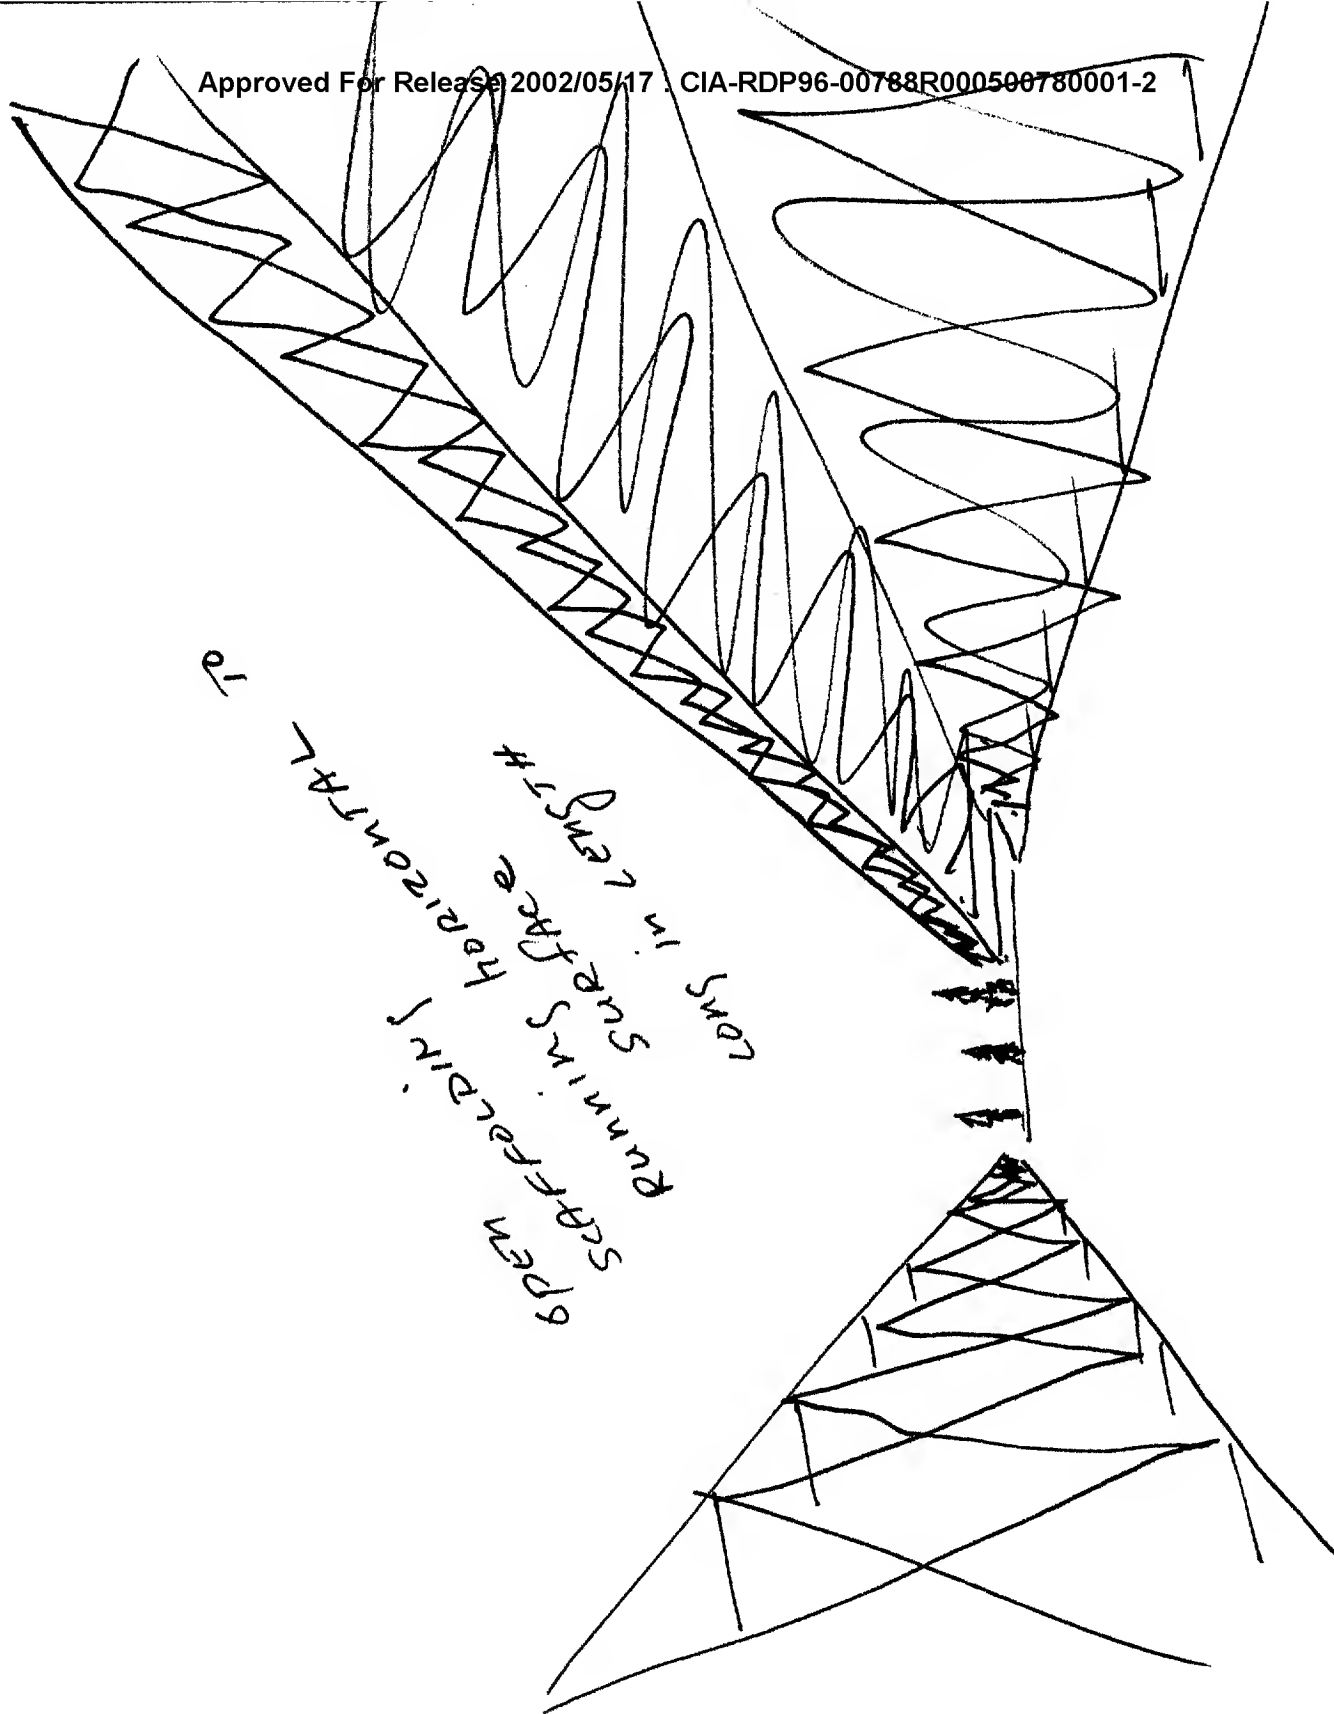 Approved For Release 2002/05/17 : CIA-RDP96-00788R000500780001-2
OPEN
SCAFFOLDING
RUNNING HORIZONTAL TO
SURFACE
LONG IN LENGTH